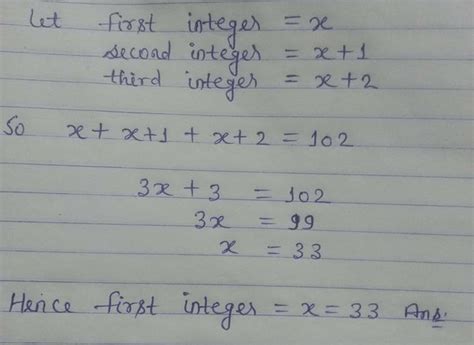 Let first integer = x
second integer = x+1
third integer = x+2
So x + x+1 + x+2 = 102
3x + 3 = 102
3x = 99
x = 33
Hence first integer = x = 33 Ans.